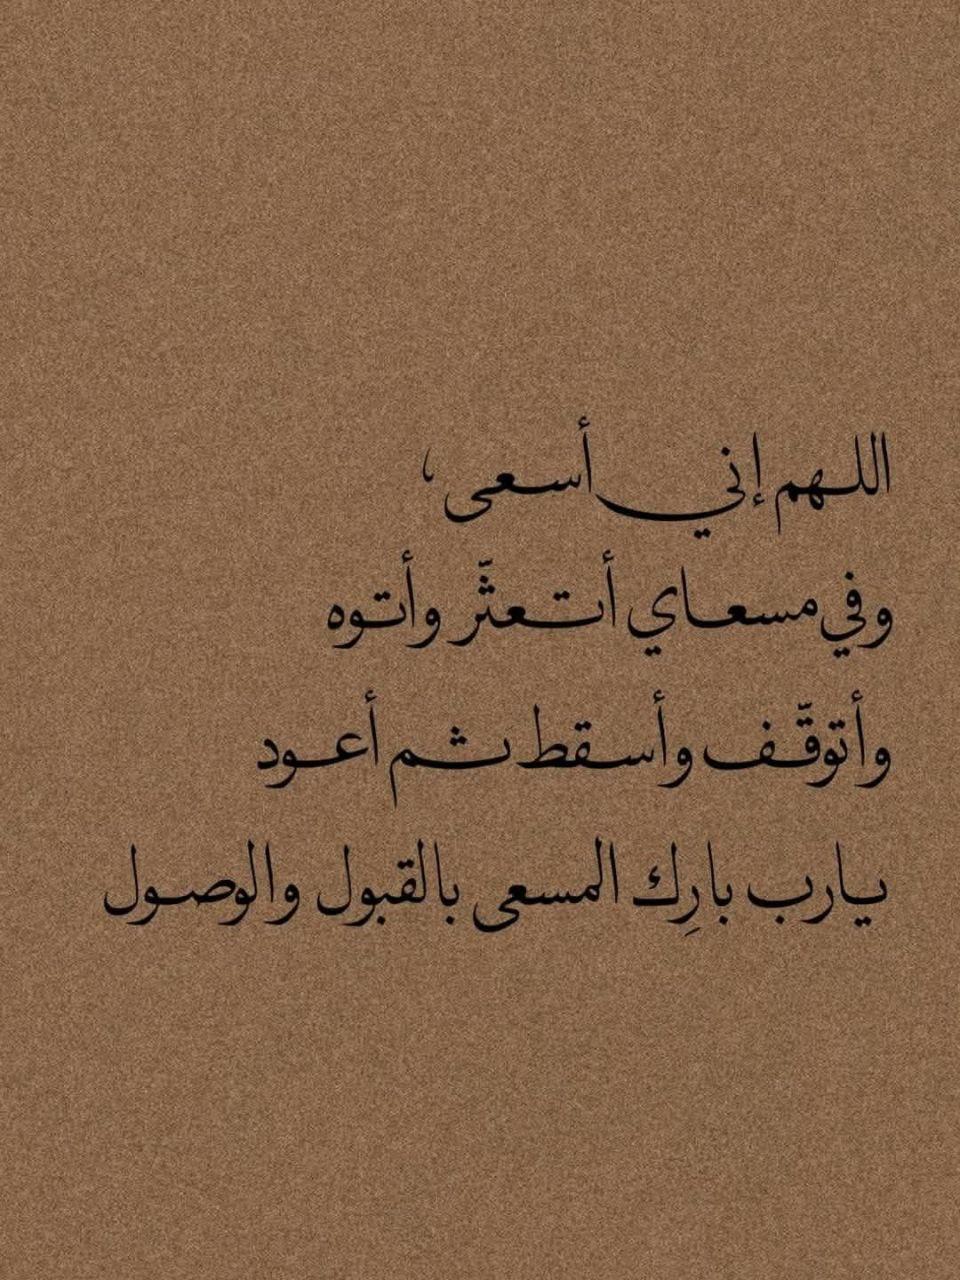 اللهم إني أسعى،
وفي مسعاي أتعثّر وأتوه
وأتوقّف وأسقط ثم أعود
يارب بارِك المسعى بالقبول والوصول